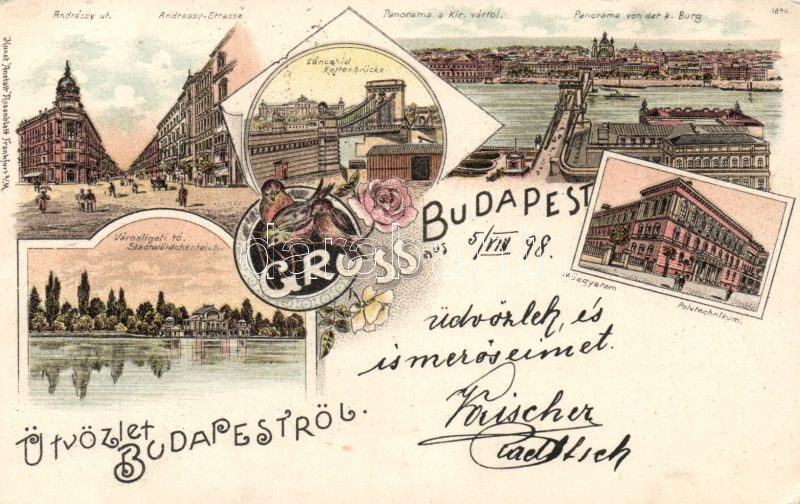 Andrássy ut. Andrassy-Strasse
Panorama a Kir. vártól. Panorama von der k. Burg
1896
Kunst Anstalt Rosenblatt Frankfurt a/M.
Lánczhid
Kettenbrücke
Városligeti tó.
Stadtwäldchenteich.
GRUSS aus BUDAPEST
5/VIII 98.
Műegyetem
Polytechnikum.
üdvözlek, és
ismerőseimet.
ÜDVÖZLET BUDAPESTRÖL.